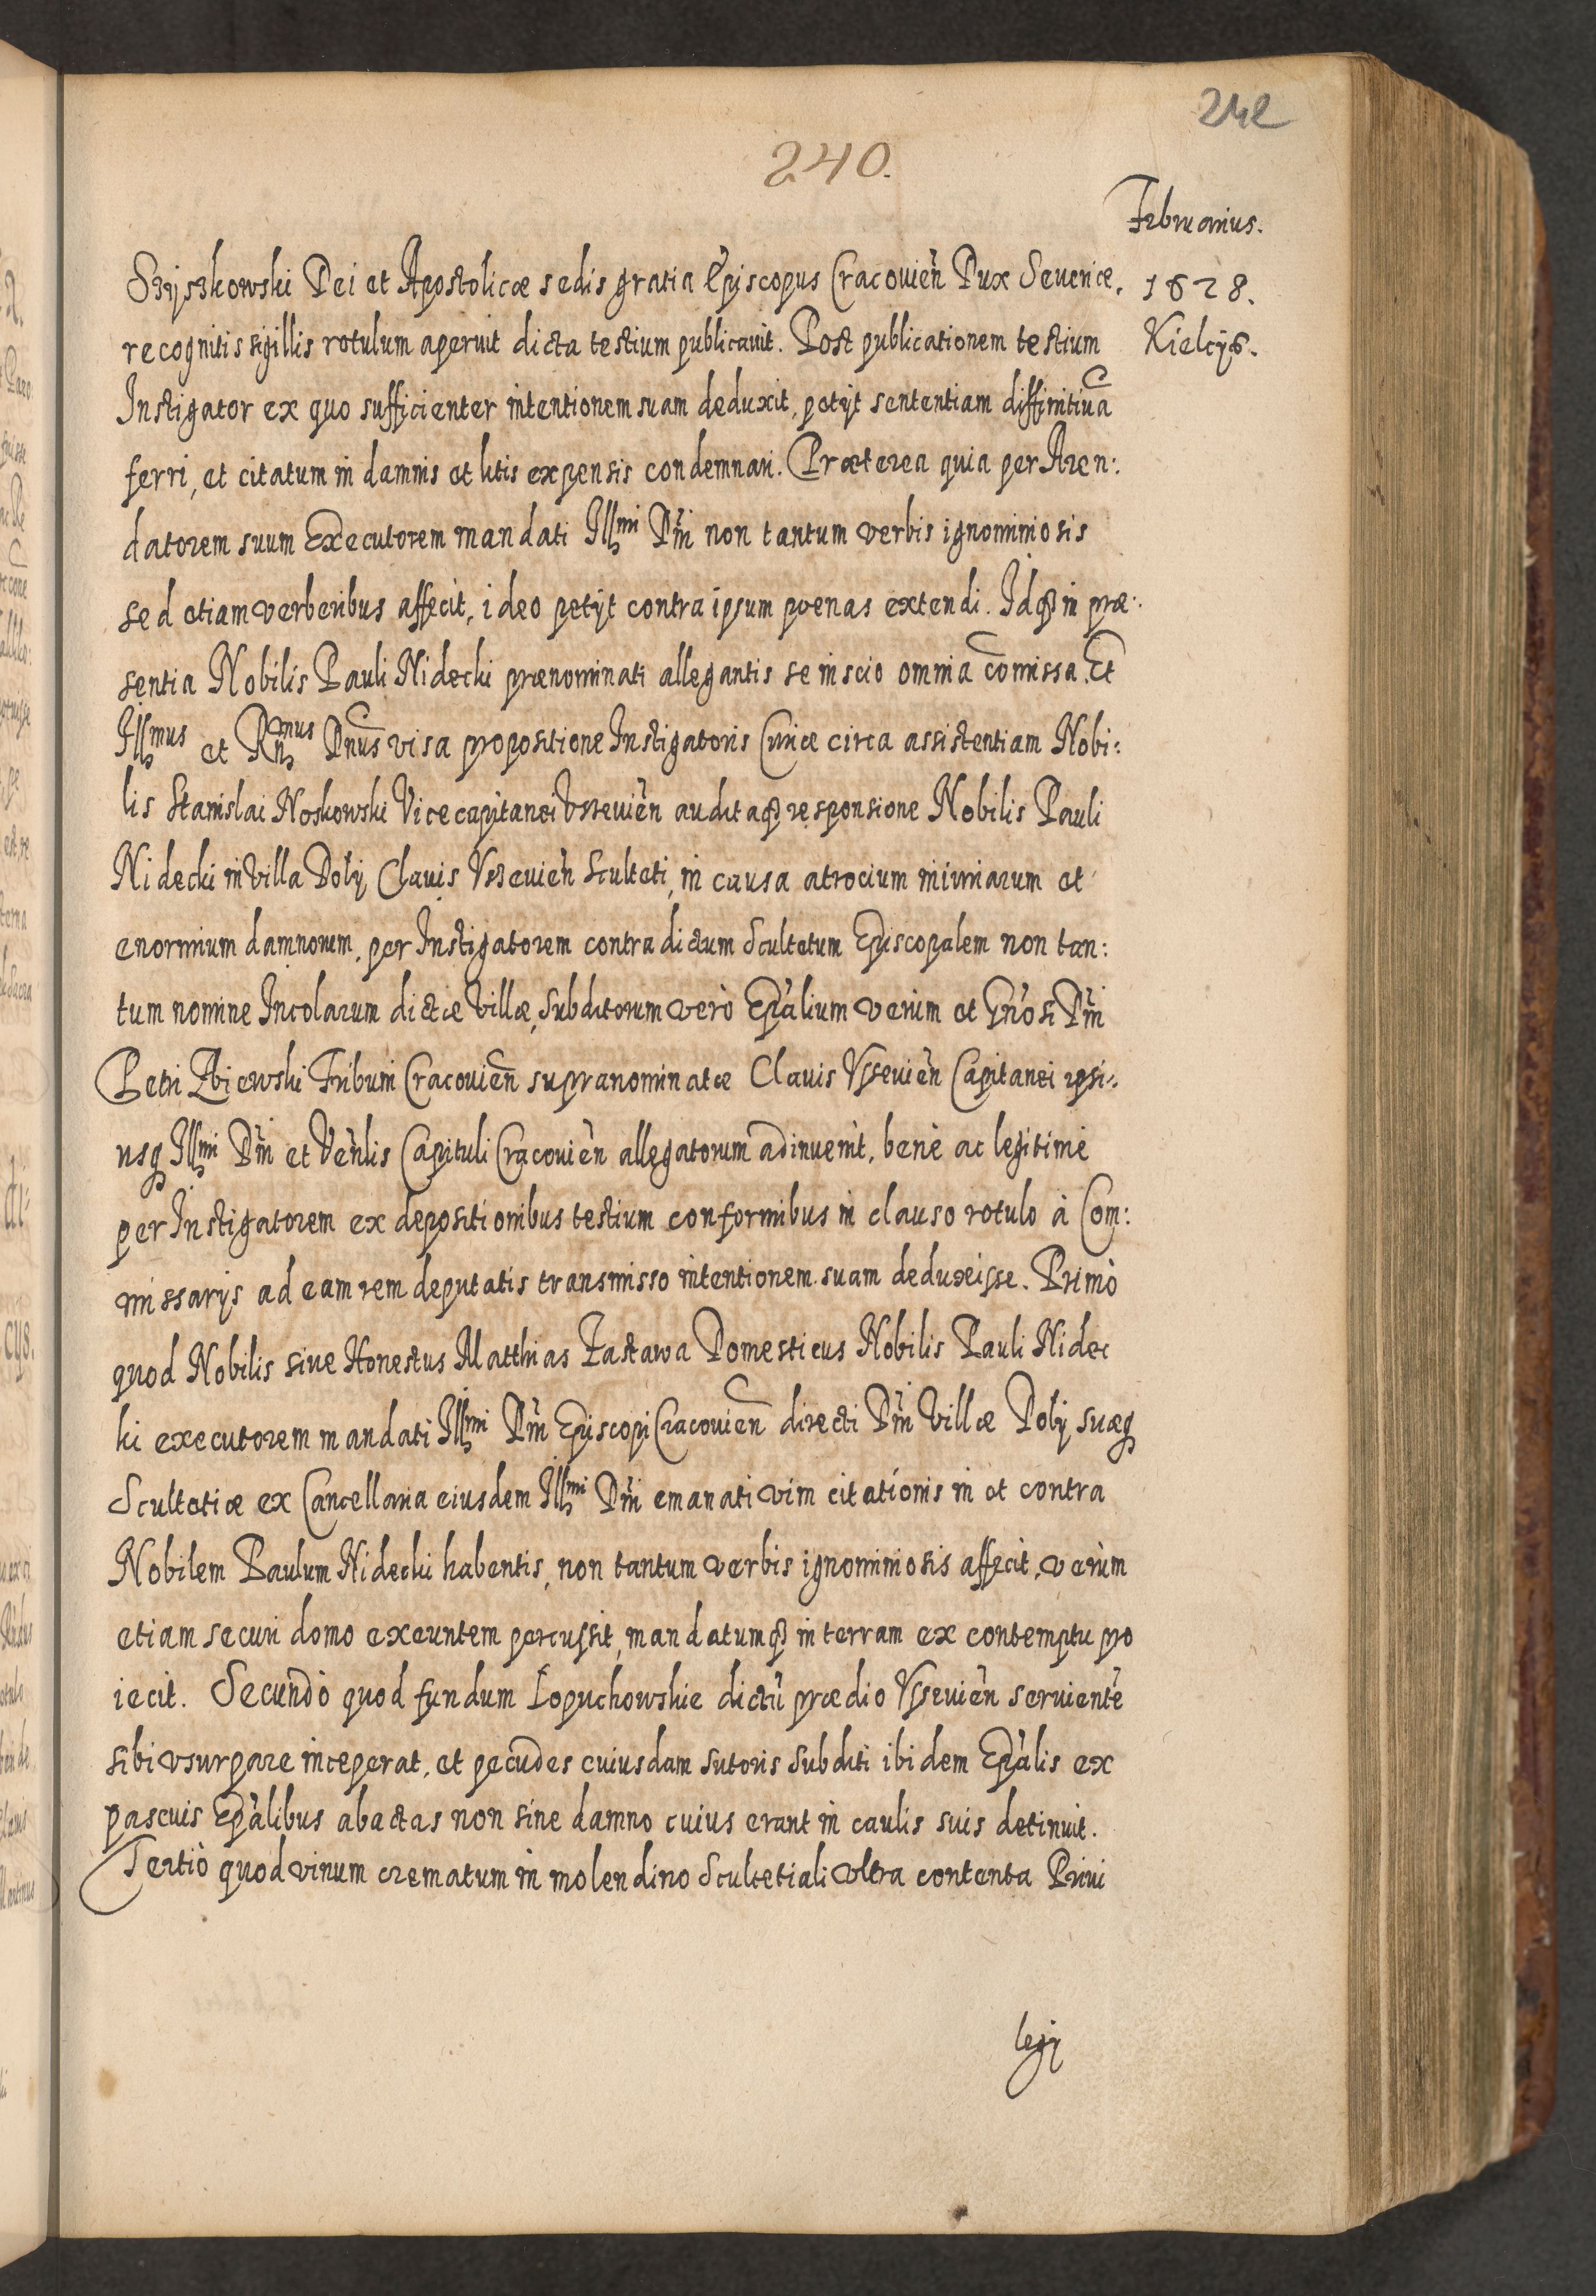 242
240.
Februarius.
1628.
Kielcÿs.
Szÿszkowski Dei et Apostolicæ sedis gratia Episcopus Cracouien̄ Dux Seueriæ,
recognitis sigillis rotulum aperuit dicta testium publicauit. Post publicationem testium
Instigator ex quo sufficienter intentionem suam deduxit, petÿt sententiam diffinitiua̅
ferri, et citatum in damnis et litis expensis condemnari. Præterea quia per Aren:
datorem suum Executorem mandati Illmi Dni̅ non tantum verbis ignominiosis
sed etiam verberibus affecit, ideo petÿt contra ipsum poenas extendi. Idq3 in præ:
sentia Nobilis Pauli Nidecki prænominati allegantis se inscio omnia com̅issa. Et
Illmus et Rn̅mus Dnu̅s visa propositione Instigatoris Curiæ circa assistentiam Nobi:
lis Stanislai Noskowski Vicecapitanei Vssevien̄ auditaq3 responsione Nobilis Pauli
Nidecki in Villa Dolÿ Clauis Vssevien̄ Sculteti, in causa atrocium iniuriarum et
enormium damnorum, per Instigatorem contra dictum Scultetum Episcopalem non tan:
tum nomine Incolarum dictæ Villæ, Subditorum verò Epa̅lium verùm et Gno̅si Dni̅
Petri Zbiewski Tribuni Cracouien̄ supranominatæ Clauis Vssevien̄ Capitanei ipsi:
usq3 Illmi Dni̅ et Ven̅lis Capituli Cracouien̄ allegatorum adinuenit, benè ac legitimè
per Instigatorem ex depositionibus testium conformibus in clauso rotulo à Com:
missarÿs ad eam rem deputatis transmisso intentionem suam deduxisse. Primò
quod Nobilis siue Honestus Matthias Zastawa Domesticus Nobilis Pauli Nidec
ki executorem mandati Illmi Dni̅ Episcopi Cracouien̄ directi Dni̅ Villæ Dolÿ suæq3
Scultetiæ ex Cancellaria eiusdem Illmi Dni̅ emanati vim citationis in et contra
Nobilem Paulum Nidecki habentis, non tantum verbis ignominiosis affecit, verùm
etiam securi domo exeuntem percussit, mandatumq3 in terram ex contemptu pro
iecit. Secundò quod fundum Łopuchowskie dictu̅ prædio Vssevien̄ seruiente̅
sibi vsurpare inceperat, et pecudes cuiusdam sutoris Subditi ibidem Epa̅lis ex
pascuis Epa̅libus abactas non sine damno cuius erant in caulis suis detinuit.
Tertiò quod vinum crematum in molendino Scultetiali vltra contenta Priui
legÿ